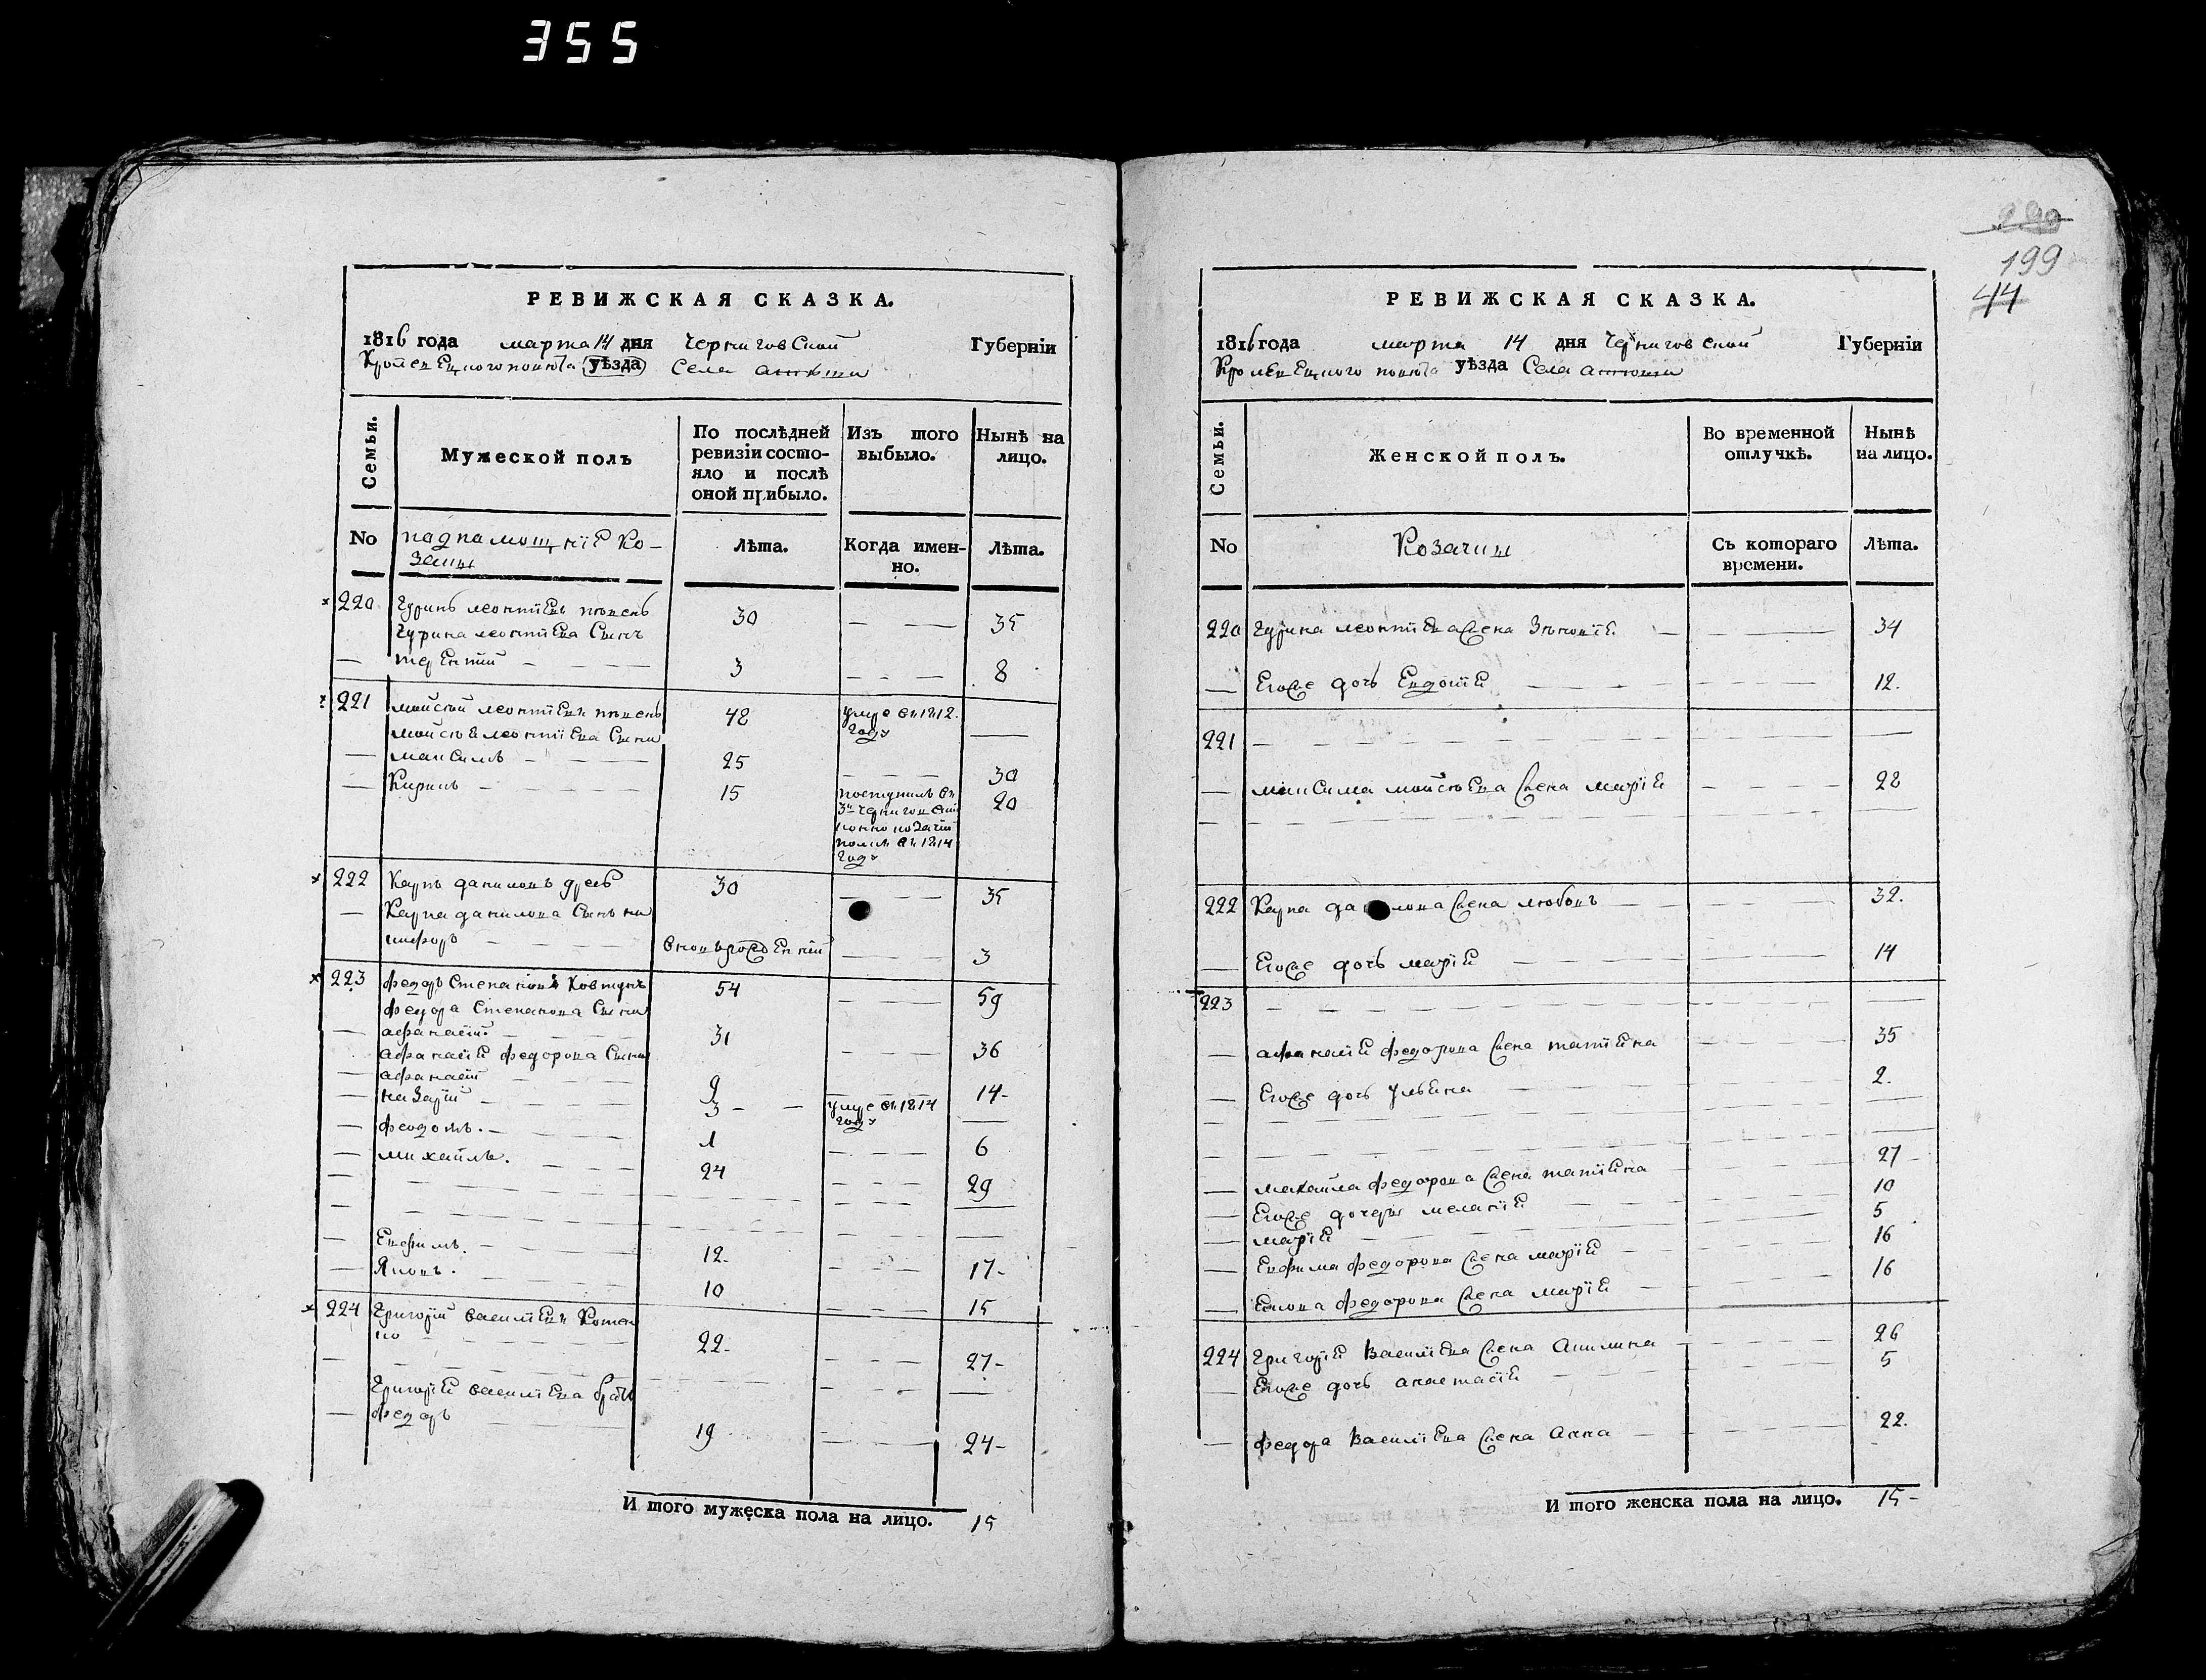 355
199
44
РЕВИЖСКАЯ СКАЗКА.
1816 года марта 14 дня Черниговской Губернїи
уѣзда Села
Семьи.
Мужеской полъ
По послѣдней ревизїи состо-
яло и послѣ
оной прибыло.
Изъ того выбыло.
Нынѣ на лицо.
No
подпамощнїе Ко-
заки
Лѣта.
Когда имен-
но.
Лѣта.
220 Гуринъ леонтїевъ 30 35
Гурина леонтїева Сынъ
терентїй 3 8
221 мойсей леонтїевъ 42 умре въ 1812
году
мойсея леонтїева Сыни
максимъ 25 30
Кирикъ 15 поступилъ въ 20
3й Чернигов
полкъ въ 1814
году
222 Карпъ даниловъ 30 35
Карпа данилова Сынъ ни
кифоръ вновьрожденнїй 3
223 федоръ Степановъ Ковтунъ 54 59
федора Степанова Сыни
афанасїй 31 36
афанасїя федорова Сыни
афанасїй 9 14
назарїй 3 умре въ 1814
году
феодотъ. 1 6
михайлъ. 24 29
Евфимъ. 12 17
Яковъ. 10 15
224 Григорїй василїевъ Котен
ко 22 27
Григорїя василїева братъ
федоръ 19 24
И того мужеска пола на лицо. 15
РЕВИЖСКАЯ СКАЗКА.
1816 года марта 14 дня Черниговской Губернїи
уѣзда Села
Семьи.
Женской полъ.
Во временной
отлучкѣ.
Нынѣ
на лицо.
No
Козачки
Съ котораго
времени.
Лѣта.
220 Гурина леонтїева жена Зѣновїя 34
Егоже дочь Евдокїя 12.
221
максима мойсѣева жена марїя 28
222 Карпа данилова жена любовъ 32.
Егоже дочь марїя 14
223
афанасїя федорова жена татїяна 35
Егоже дочь улїяна 2.
михайла федорова жена татїяна 27
Егоже дочери меланїя 10
марїя 5
Евфима федорова жена марїя 16
Якова федорова жена марїя 16
224 Григорїя Василїева жена Акилина 26
Егоже дочь анастасїя 5
федора Василїева жена Анна 22.
И того женска пола на лицо. 15